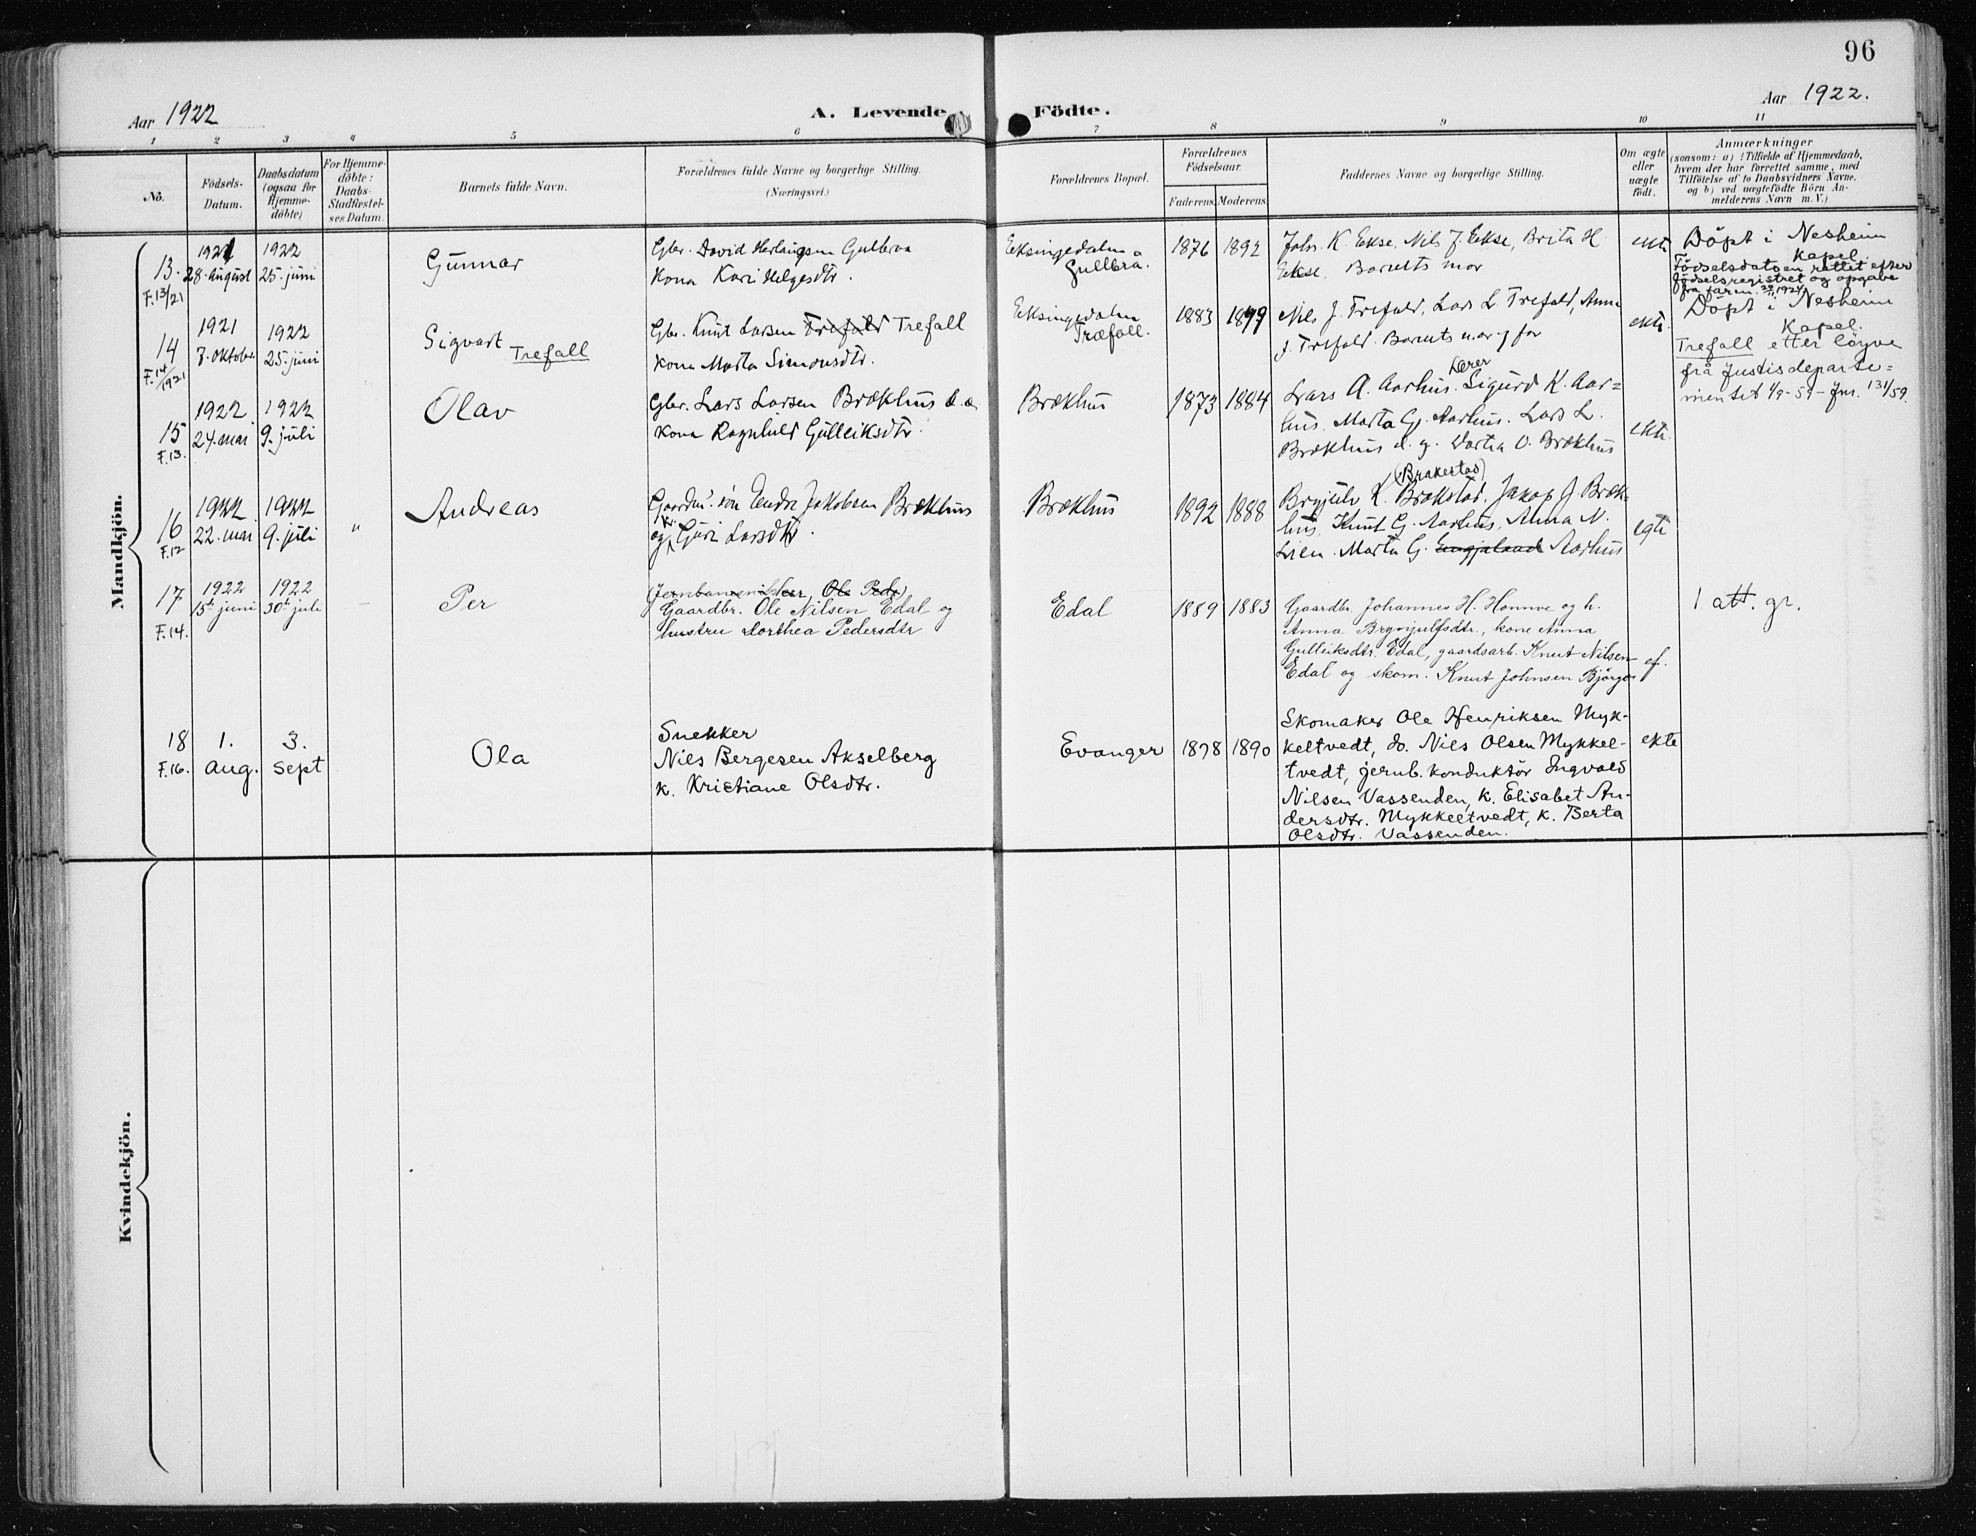 96
Aar 1922
A. Levende
Födte.
Aar 1922.
1 2 3 4 5 6 7 8 9 10 11
No.
Födsels-
Datum.
Daabsdatum
(ogsaa for
Hjemme-
döbte)
For Hjemme-
döbte:
Daabs-
Stadfæstel-
ses Datum.
Barnets fulde Navn.
Forældrenes fulde Navne og borgerlige Stilling.
(Næringsvei.)
Forældrenes Bopæl.
Forældrenes
Födselsaar.
Faderens. Moderens.
Faddernes Navne og borgerlige Stilling.
Om ægte
eller
uægte
födt.
Anmærkninger
(saasom: a) i Tilfælde af Hjemmedaab,
hvem der har forrettet samme, med
Tilföielse af to Daabsvidners Navne,
og b) ved uægtefödte Börn An-
melderens Navn m. V.)
Mandkjön.
13.
F.13/21
1921
28. august
1922
25. juni
Gunnar
Gbr. David Herlaugsen Gullbraa
Kona Kari Helgesdtr.
Eksingedalen
Gullbrå.
1876 1892
Johs. K. Ekse, Nils J. Ekse, Brita H.
Ekse. Barnets mor
ekte
Döpt i Nesheim
Kapel.
Födselsdatoen rettet efter
födselsregistret og opgave
14
F.14/1921
1921
7. oktober
1922
25. juni
Sigvart Trefall
Gbr. Knut Larsen Trefald Trefall
Kona Marta Simonsdtr.
Eksingedalen
Træfall.
1883 1899
Nils J. Trefald, Lars L. Trefald, Anna
J. Trefald. Barnets mor og far
ekte.
Döpt i Nesheim
Kapel.
Trefall etter löyve
frå Justisdeparte=
mentet 1/9-59 - Jnr. 131/59.
15
F.13.
1922
24. mai
1922
9. juli
Olav
Gbr. Lars Larsen Brækhus d. e.
Kona Ragnhild Gulleiksdtr.
Brækhus
1873 1884
Lærer
Lars A. Aarhus. Sigurd K. Aar=
hus. Marta G. Aarhus. Lars L.
Brækhus d. y. Dortea O. Brækhus
ekte.
16
F.12
1922
22. mai
1922
9. juli
"
Andreas
Gaardm. søn Endre Jakobsen Brækhus
og k. Guri Larsdtr.
Brækhus
1892 1888
(Brakestad)
Brynjulv K. Brækstad, Jakop J. Bræk-
hus, Knut G. Aarhus, Anna N.
Lien. Marta G. Aarhus
egte
17
F.14.
1922
15de juni
1922
30te juli
–
Per
Gaardbr. Ole Nilsen Edal og
hustru Dorthea Pedersdtr
Edal
1889 1883
Gaardbr Johannes H. Honnve og h.
Anna Brynjulfsdtr., kone Anna
Gulleiksdtr. Edal, gaardsarb. Knut Nilsen
Edal og skom. Knut Johnsen Björgo
ef.
1 att. gr.
18
F.16.
1.
aug.
3.
sept
Ola
Snekker
Nils Bergesen Akselberg
k. Kristiane Olsdtr.
Evanger
1878 1890
Skomaker Ole Henriksen Myk-
keltvedt, do. Nils Olsen Mykkel-
tvedt, jernb. konduktör Ingvald
Nilsen Vassenden, k. Elisabet An-
dersdtr. Mykkeltvedt, k. Berta
Olsdtr. Vassenden.
ekte
Kvindekjön.